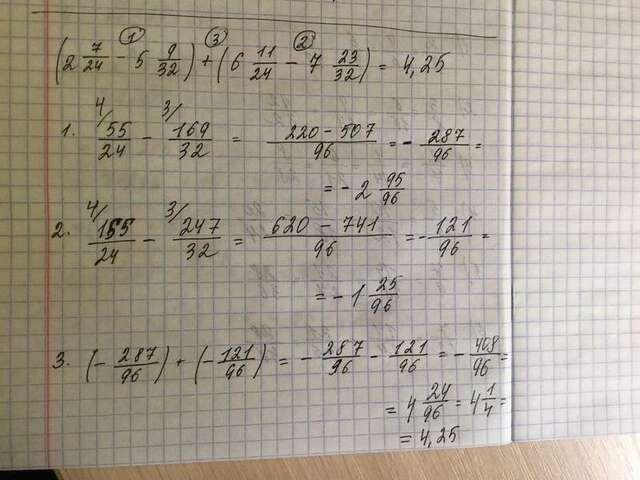 ① ③ ②
(2 7/24 - 5 9/32) + (6 11/24 - 7 23/32) = 4,25
1. 4/ 55/24 - 3/ 169/32 = 220 - 507/96 = - 287/96 =
= - 2 95/96
2. 4/ 155/24 - 3/ 247/32 = 620 - 741/96 = - 121/96 =
= - 1 25/96
3. (- 287/96) + (- 121/96) = - 287/96 - 121/96 = - 408/96 =
= 4 24/96 = 4 1/4 =
= 4,25